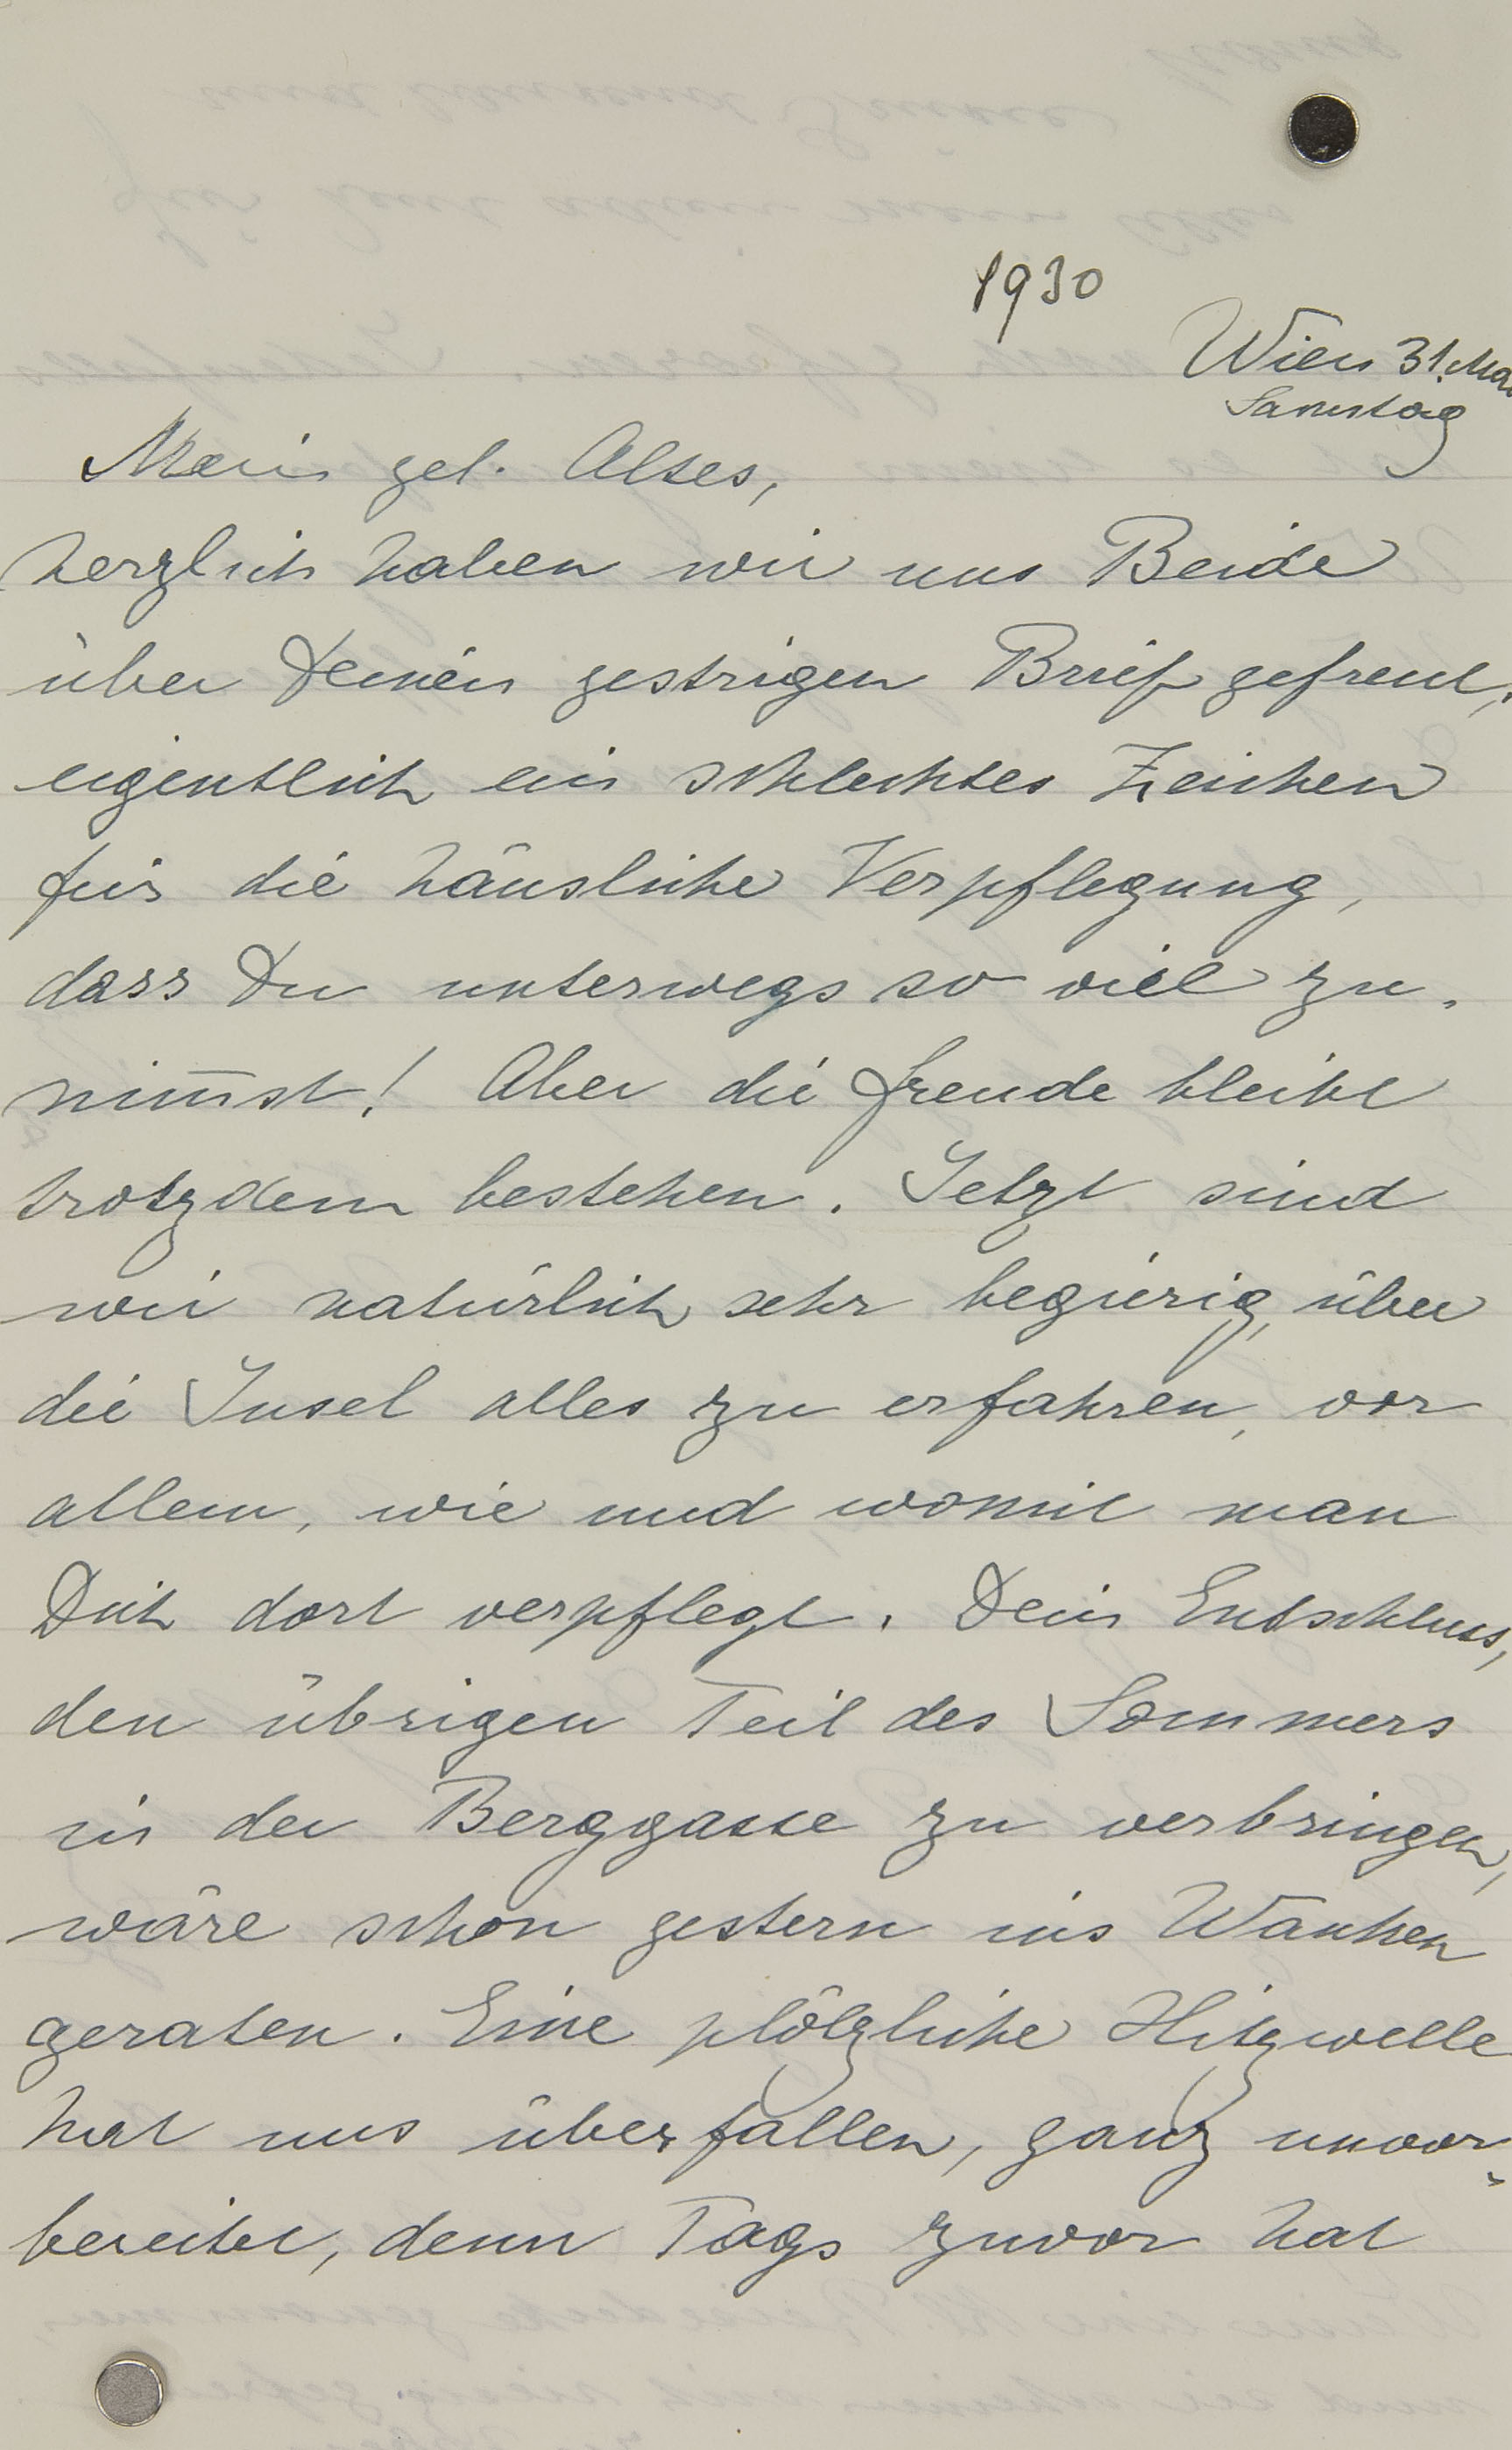 1930
Wien 31. Mai
Samstag
Mein gel. Altes,
herzlich haben wir uns Beide
über Deinen gestrigen Brief gefreut,
eigentlich ein schlechtes Zeichen
für die häusliche Verpflegung,
dass Du unterwegs so viel zu-
nim̅st! Aber die Freude bleibt
trotzdem bestehen. Jetzt sind
wir natürlich sehr begierig, über
die Insel alles zu erfahren, vor
allem, wie und womit man
Dich dort verpflegt. Dein Entschluss,
den übrigen Teil des Sommers
in der Berggasse zu verbringen,
wäre schon gestern ins Wanken
geraten. Eine plötzliche Hitzwelle
hat uns überfallen, ganz unvor-
bereitet, denn Tags zuvor hat